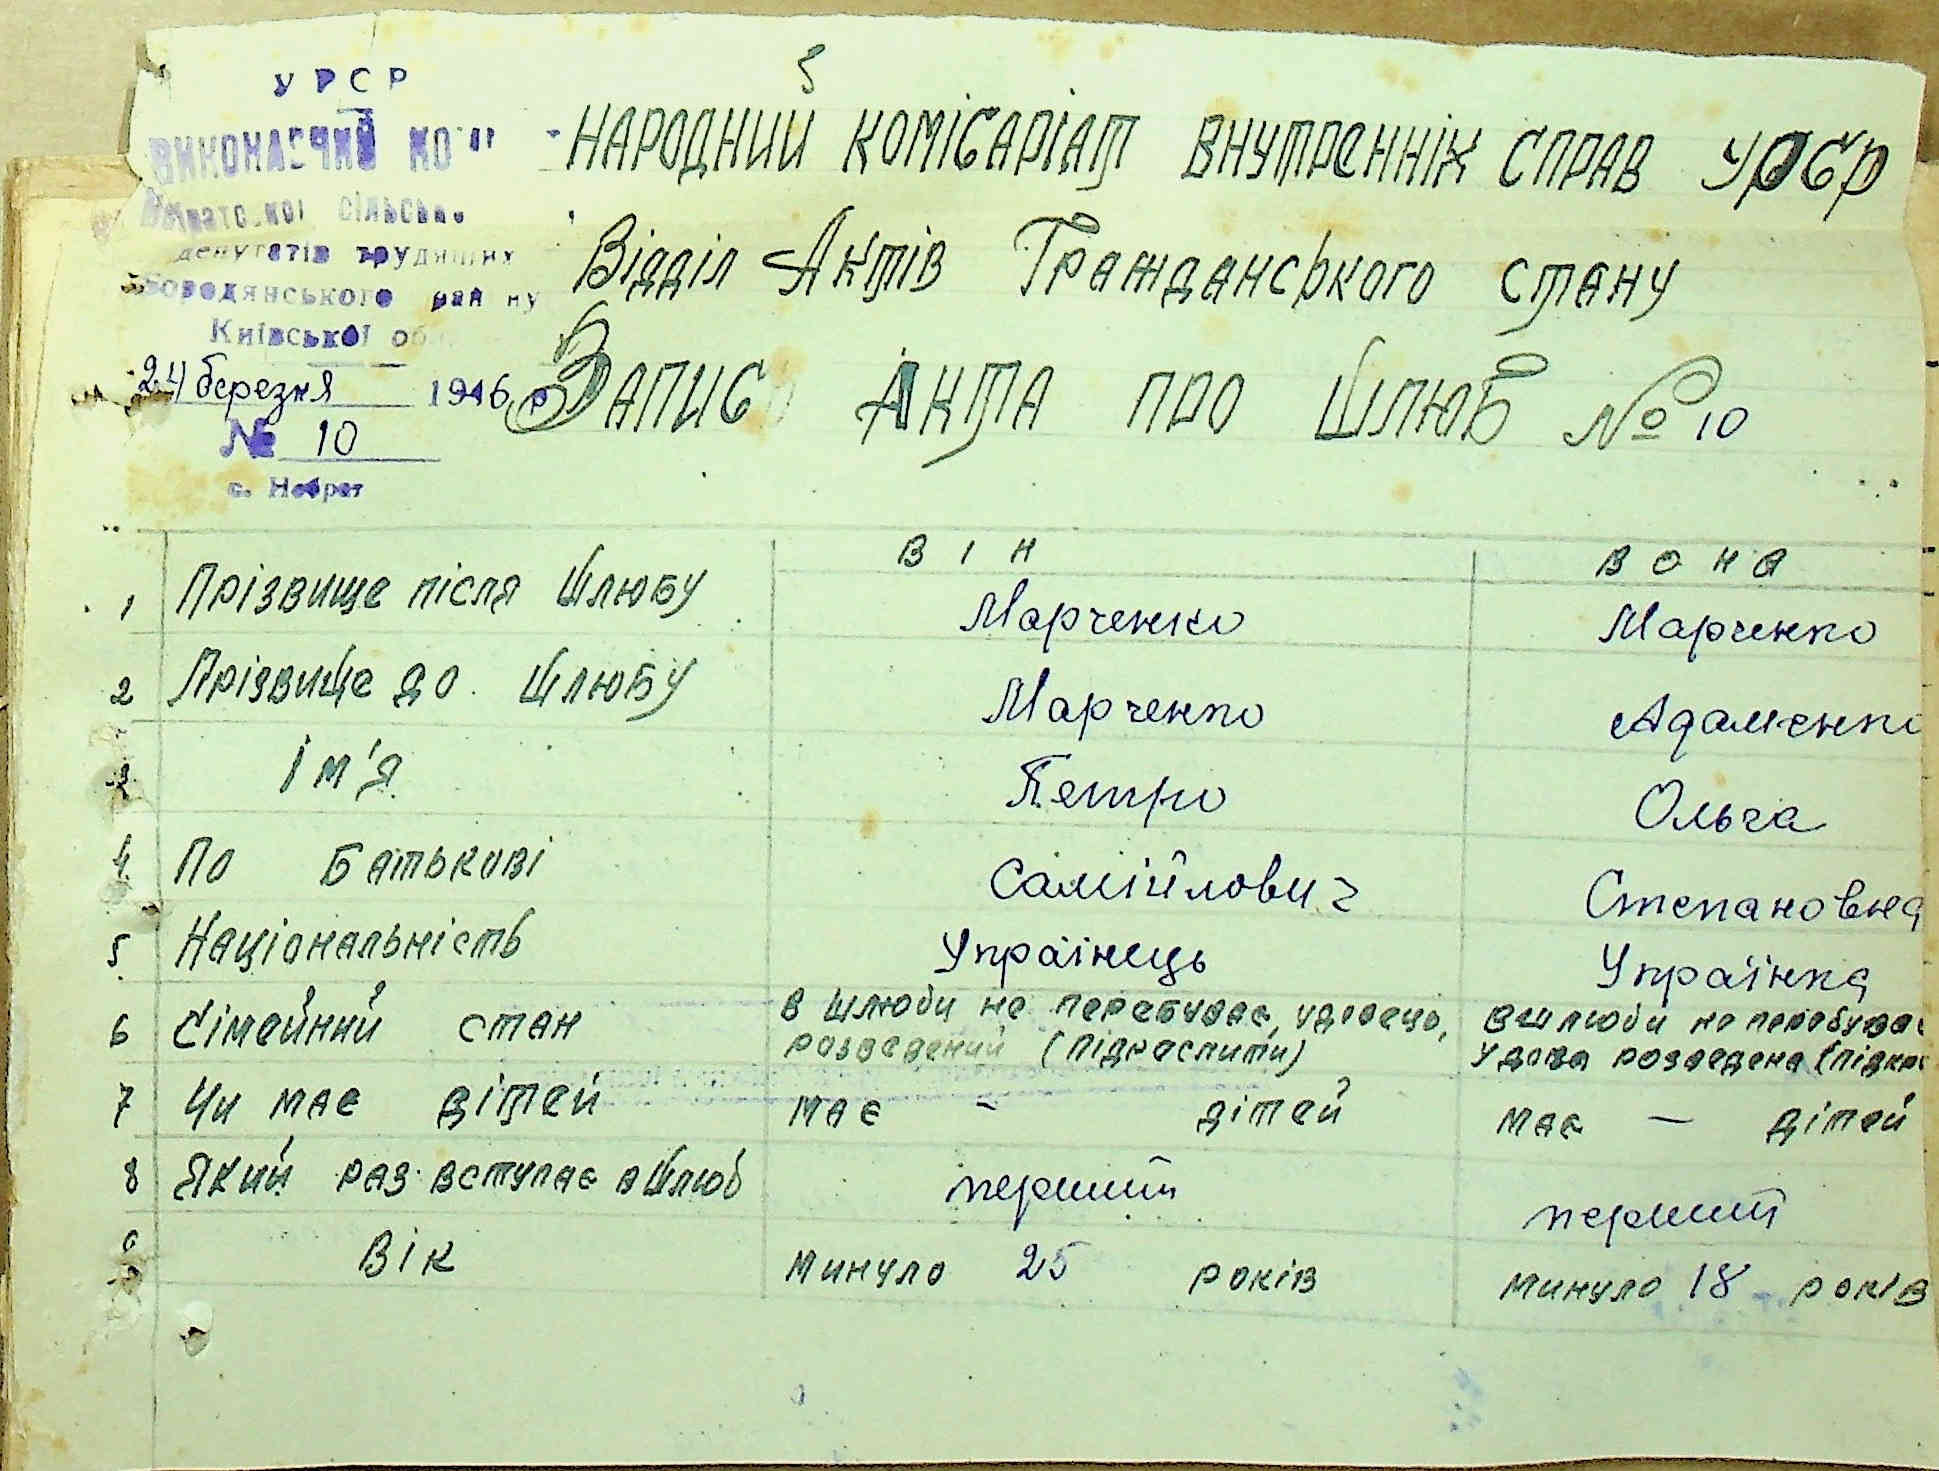 УРСР
ВИКОНАВЧИЙ КО
сільськ
депутатів трудящих
Бородянського рай ну
Київської об
24 березня 1946 р
№ 10
с. Небрат
5
НАРОДНИЙ КОМІСАРІАТ ВНУТРЕННІХ СПРАВ УРСР
Відділ Актів Гражданського стану
ЗАПИС АКТА ПРО ШЛЮБ № 10
ВІН ВОНА
1 Прізвище після шлюбу Марченко Марченко
2 Прізвище до шлюбу Марченко Адаменко
3 Ім'я Петро Ольга
4 По батькові Самійлович Степановна
5 Національність Українець Українка
6 Сімейний стан в шлюби не перебував, удовець, розведений (підкреслити) в шлюби не перебува удова розведена (підкре
7 Чи має дітей має - дітей має - дітей
8 Який раз вступає в шлюб перший перший
9 Вік минуло 25 років минуло 18 років